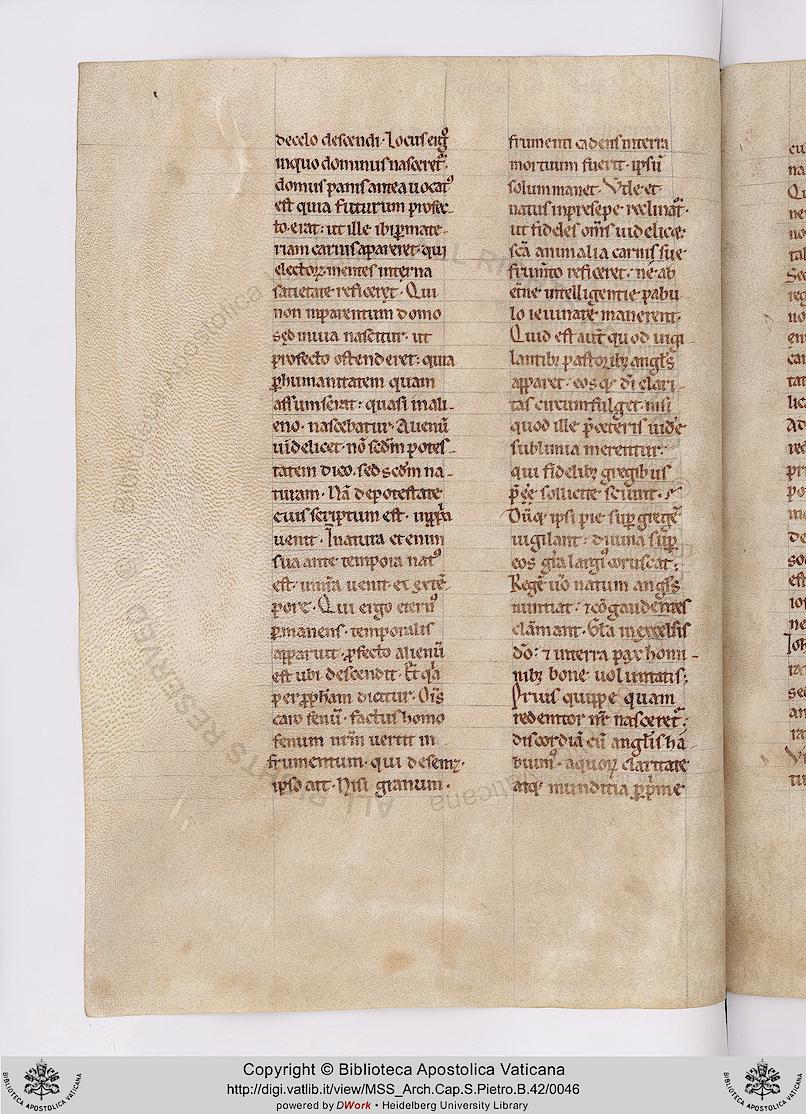 decelo descendi. Locus erg̾
inquo dominus nasceret᷑.
domus panis antea uocat᷒
est quia futurum profec-
to erat: ut ille ibi ꝑmate-
riam carnis apareret. qui
electoꝝ mentes interna
satietate reficeret. Qui
non inparentum domo
sed inuia nascitur. ut
profecto ostenderet: quia
ꝑhumanitatem quam
assumserat: quasi inali-
eno. nascebatur. Alienū
uidelicet. nō scd̄m potes-
tatem dico. sed scd̄m na-
turam. Nā depotestate
eius scriptum est. inꝓp̄a
uenit. Innatura etenim
sua ante tempora nat᷒
est. inn̄ra uenit. ex
pore. Qui ergo etern᷒
ꝑmanens. temporalis
apparuit. ꝓfecto alienū
est ubi descendit. Et qa
per ꝓph̄am dicitur. Ōis
caro fenū. factus homo
fenum nr̄m uertit in
frumentum. qui desemꝫ.
ipso ait. Nisi granum.
frumenti cadens interra
mortuum fuerit. ipsū
solum manet. Vnde et
natus inpresepe reclinat᷑.
ut fideles om̄s uidelicet
sc̄a animalia carnis sue
frum̄to reficeret. ne ab
et̄ne intelligentie pabu
lo ieiunare manerent.
Quid est aut̄ quod uigi
lantibꝫ pastoribꝫ angl̄s
apparet. eos qꝫ dn̄i clari-
tas circumfulget. nisi
quod ille p̄ceteris uide
sublimia merentur.
qui fidelibꝫ gregibus
p̄ee sollicite sciunt.
Dūqꝫ ipsi pie suꝑ gregē
uigilant: diuina suꝑ
eos gr̄a largi᷒ coruscat:
Regē uō natum angl̄s
nuntiat. ⁊ cōgaudentes
clamant. Gl̄a inexcelsis
dō: ⁊ interra pax homi-
nibꝫ bone uoluntatis;
Prius quippe quam
redemtor nr̄ nasceret᷑.
discordiā cū angl̄is ha
bum᷒. aquoꝝ claritate
atqꝫ munditia ꝑp̄me
Copyright © Biblioteca Apostolica Vaticana
http://digi.vatlib.it/view/MSS_Arch.Cap.S.Pietro.B.42/0046
powered by DWork • Heidelberg University Library
BIBLIOTECA APOSTOLICA VATICANA
BIBLIOTECA APOSTOLICA VATICANA